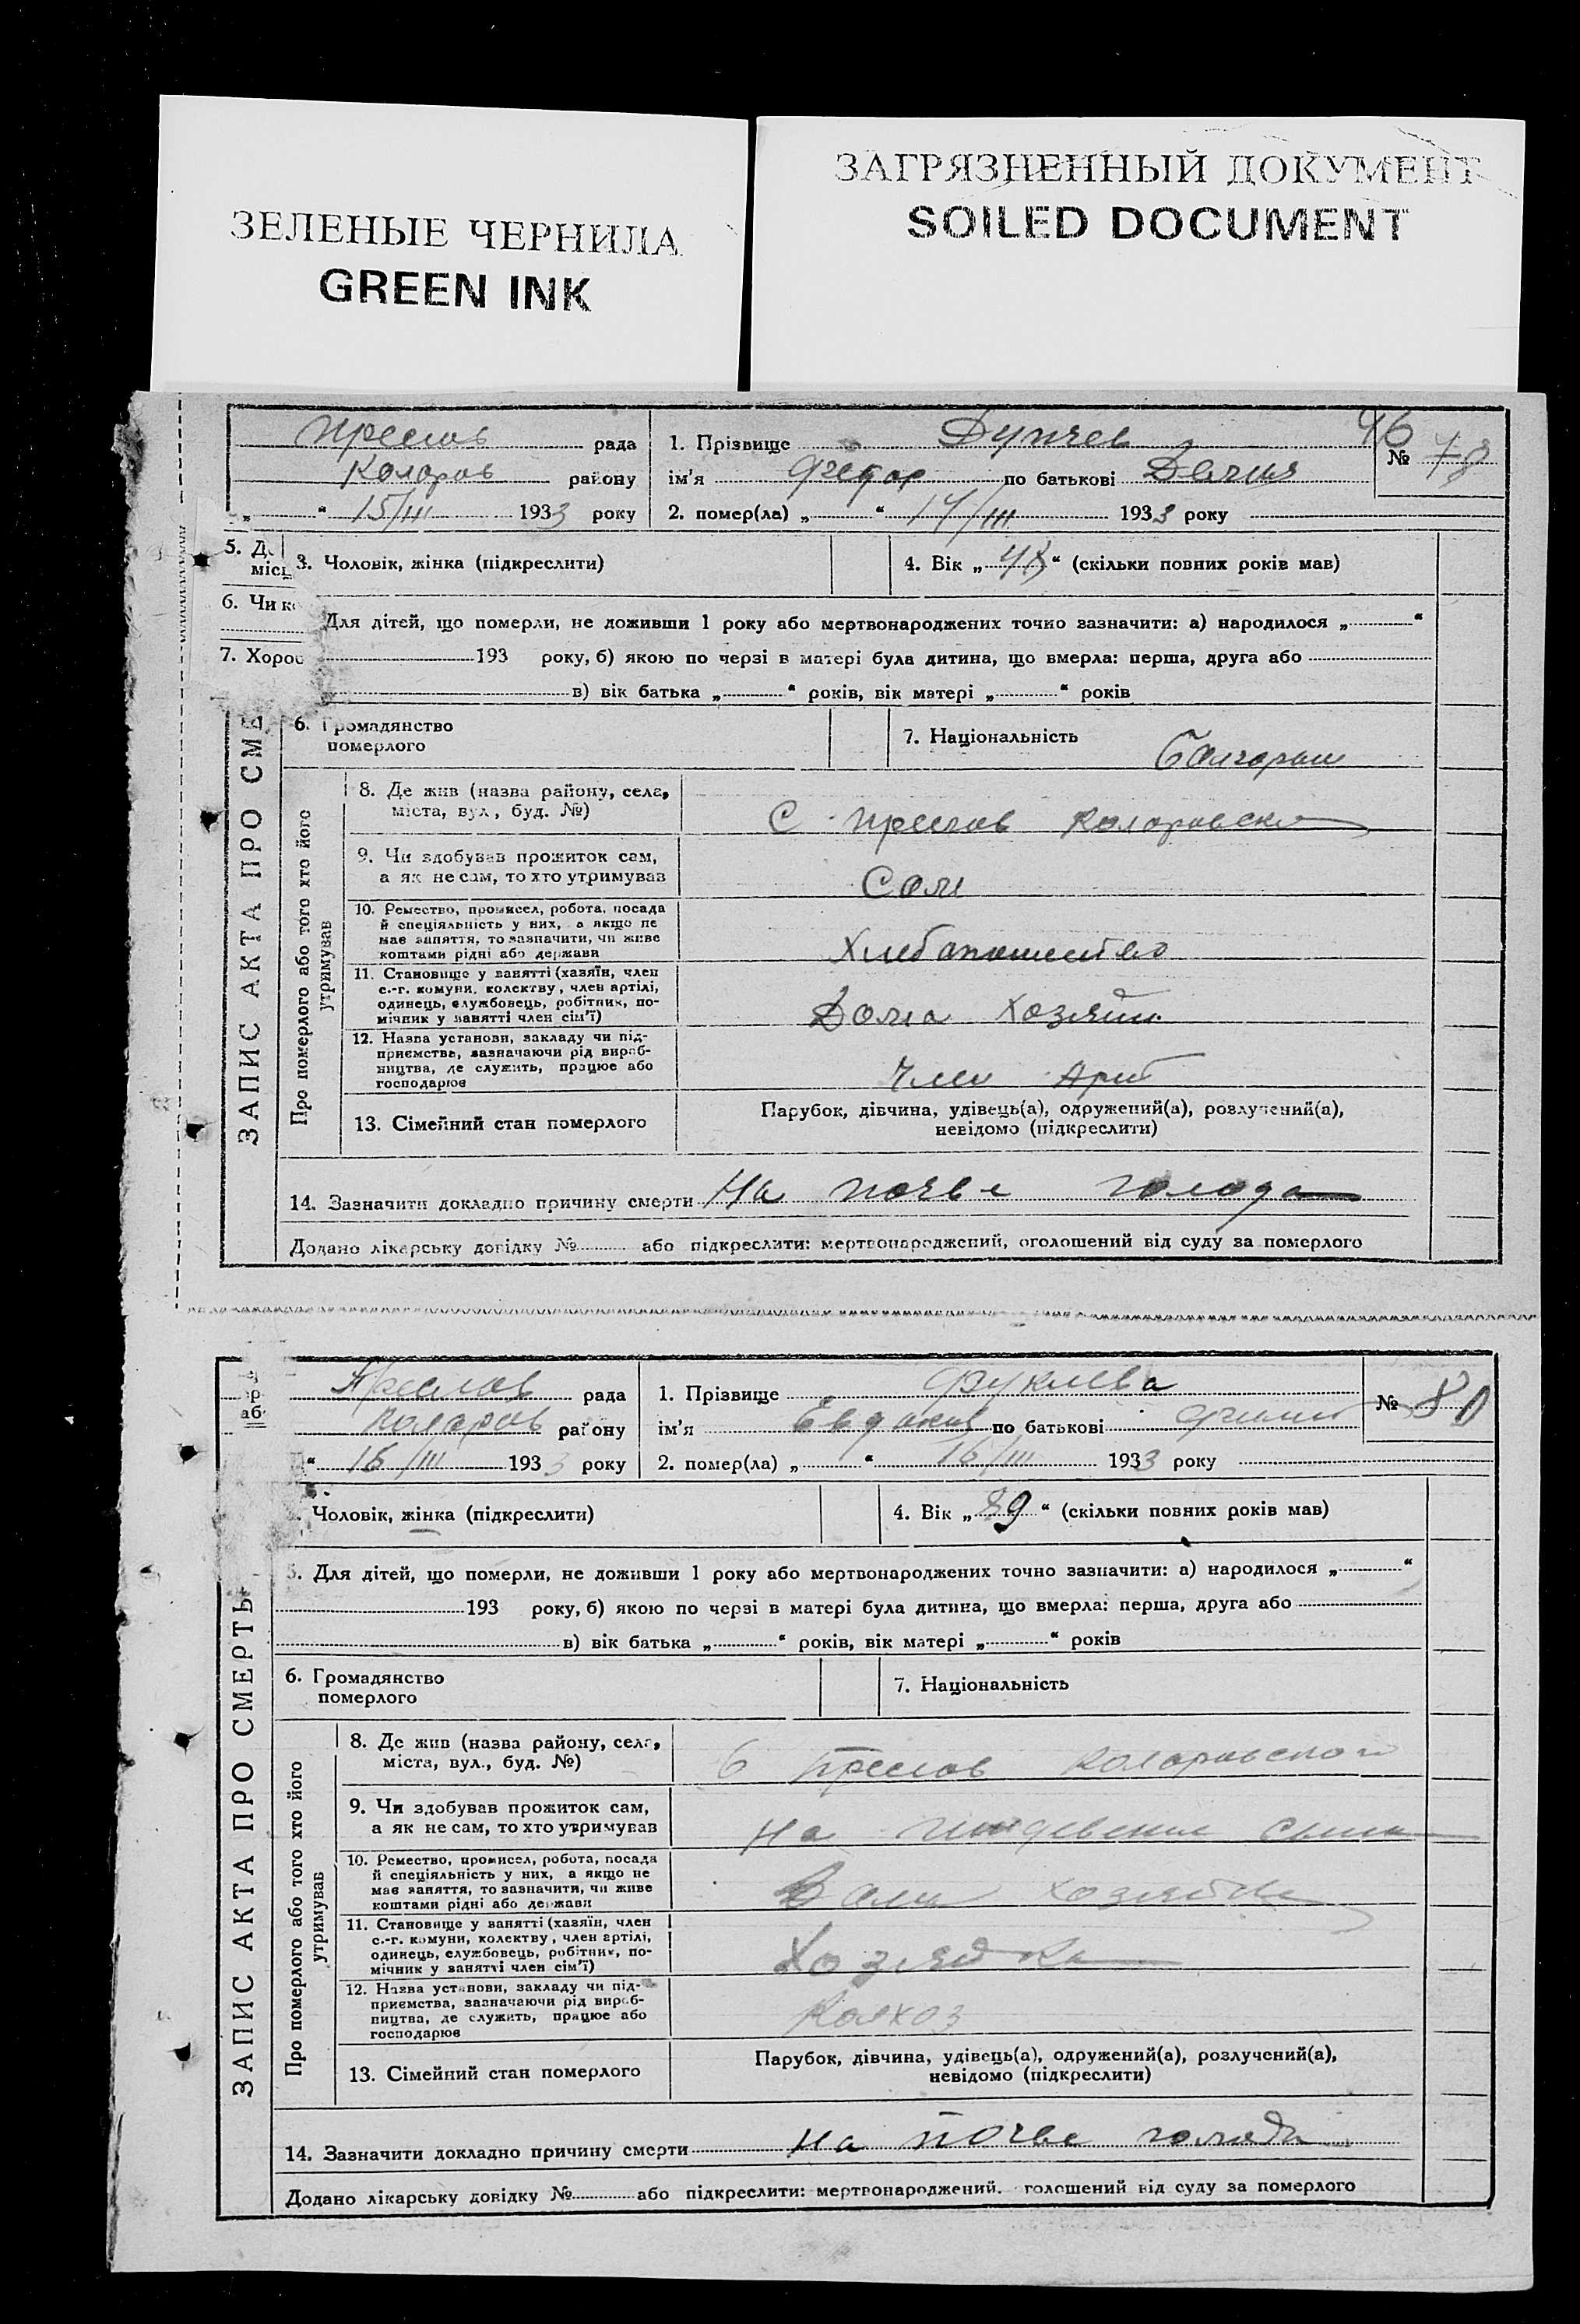 ЗЕЛЕНЫЕ ЧЕРНИЛА
GREEN INK
ЗАГРЯЗНЕННЫЙ ДОКУМЕНТ
SOILED DOCUMENT
Преслав рада
Коларов району
„ “ 15/III 1933 року
1. Прізвище Дупчев
ім'я Фёдор по батькові
2. помер(ла) „ “ 14/III 1933 року
46
№ 78
5. Де
місц
6. Чи ко
7. Хорос
3. Чоловік, жінка (підкреслити)
4. Вік „ “ (скільки повних років мав)
Для дітей, що померли, не доживши 1 року або мертвонароджених точно зазначити: а) народилося „ “
193 року, б) якою по черзі в матері була дитина, що вмерла: перша, друга або
в) вік батька „ “ років, вік матері „ “ років
6. Громадянство
померлого
7. Національність
ЗАПИС АКТА ПРО СМЕ
Про померлого або того хто його
утримував
8. Де жив (назва району, села,
міста, вул., буд. №)
С Преслав Коларовско
9. Чи здобував прожиток сам,
а як не сам, то хто утримував
Сам
10. Ремество, промисел, робота, посада
й спеціяльність у них, а якщо не
має заняття, то зазначити, чи живе
коштами рідні або держави
11. Становище у занятті (хазяїн, член
с.-г. комуни, колектву, член артілі,
одинець, службовець, робітник, по-
мічник у занятті член сім'ї)
Дома хозяин
12. Назва установи, закладу чи під-
приємства, зазначаючи рід вироб-
ництва, де служить, працює або
господарює
Член Арт
13. Сімейний стан померлого
Парубок, дівчина, удівець(а), одружений(а), розлучений(а),
невідомо (підкреслити)
14. Зазначити докладно причину смерти На почве голода
Додано лікарську довідку № або підкреслити: мертвонароджений, оголошений від суду за померлого
аб
Преслав рада
Коларов району
“ 16/III 1933 року
1. Прізвище Фуклева
ім'я Евдокия по батькові
2. помер(ла) „ “ 16/III 1933 року
№ 80
Чоловік, жінка (підкреслити)
4. Вік „ 89 “ (скільки повних років мав)
5. Для дітей, що померли, не доживши 1 року або мертвонароджених точно зазначити: а) народилося „ “
193 року, б) якою по черзі в матері була дитина, що вмерла: перша, друга або
в) вік батька „ “ років, вік матері „ “ років
6. Громадянство
померлого
7. Національність
ЗАПИС АКТА ПРО СМЕРТЬ
Про померлого або того хто його
утримував
8. Де жив (назва району, села,
міста, вул., буд. №)
Преслав Коларовского
9. Чи здобував прожиток сам,
а як не сам, то хто утримував
На сына
10. Ремество, промисел, робота, посада
й спеціяльність у них, а якщо не
має заняття, то зазначити, чи живе
коштами рідні або держави
11. Становище у занятті (хазяїн, член
с.-г. комуни, колектву, член артілі,
одинець, службовець, робітник, по-
мічник у занятті член сім'ї)
Хозяйка
12. Назва установи, закладу чи під-
приємства, зазначаючи рід вироб-
ництва, де служить, працює або
господарює
Колхоз
13. Сімейний стан померлого
Парубок, дівчина, удівець(а), одружений(а), розлучений(а),
невідомо (підкреслити)
14. Зазначити докладно причину смерти на почве голода
Додано лікарську довідку № або підкреслити: мертвонароджений, голошений від суду за померлого